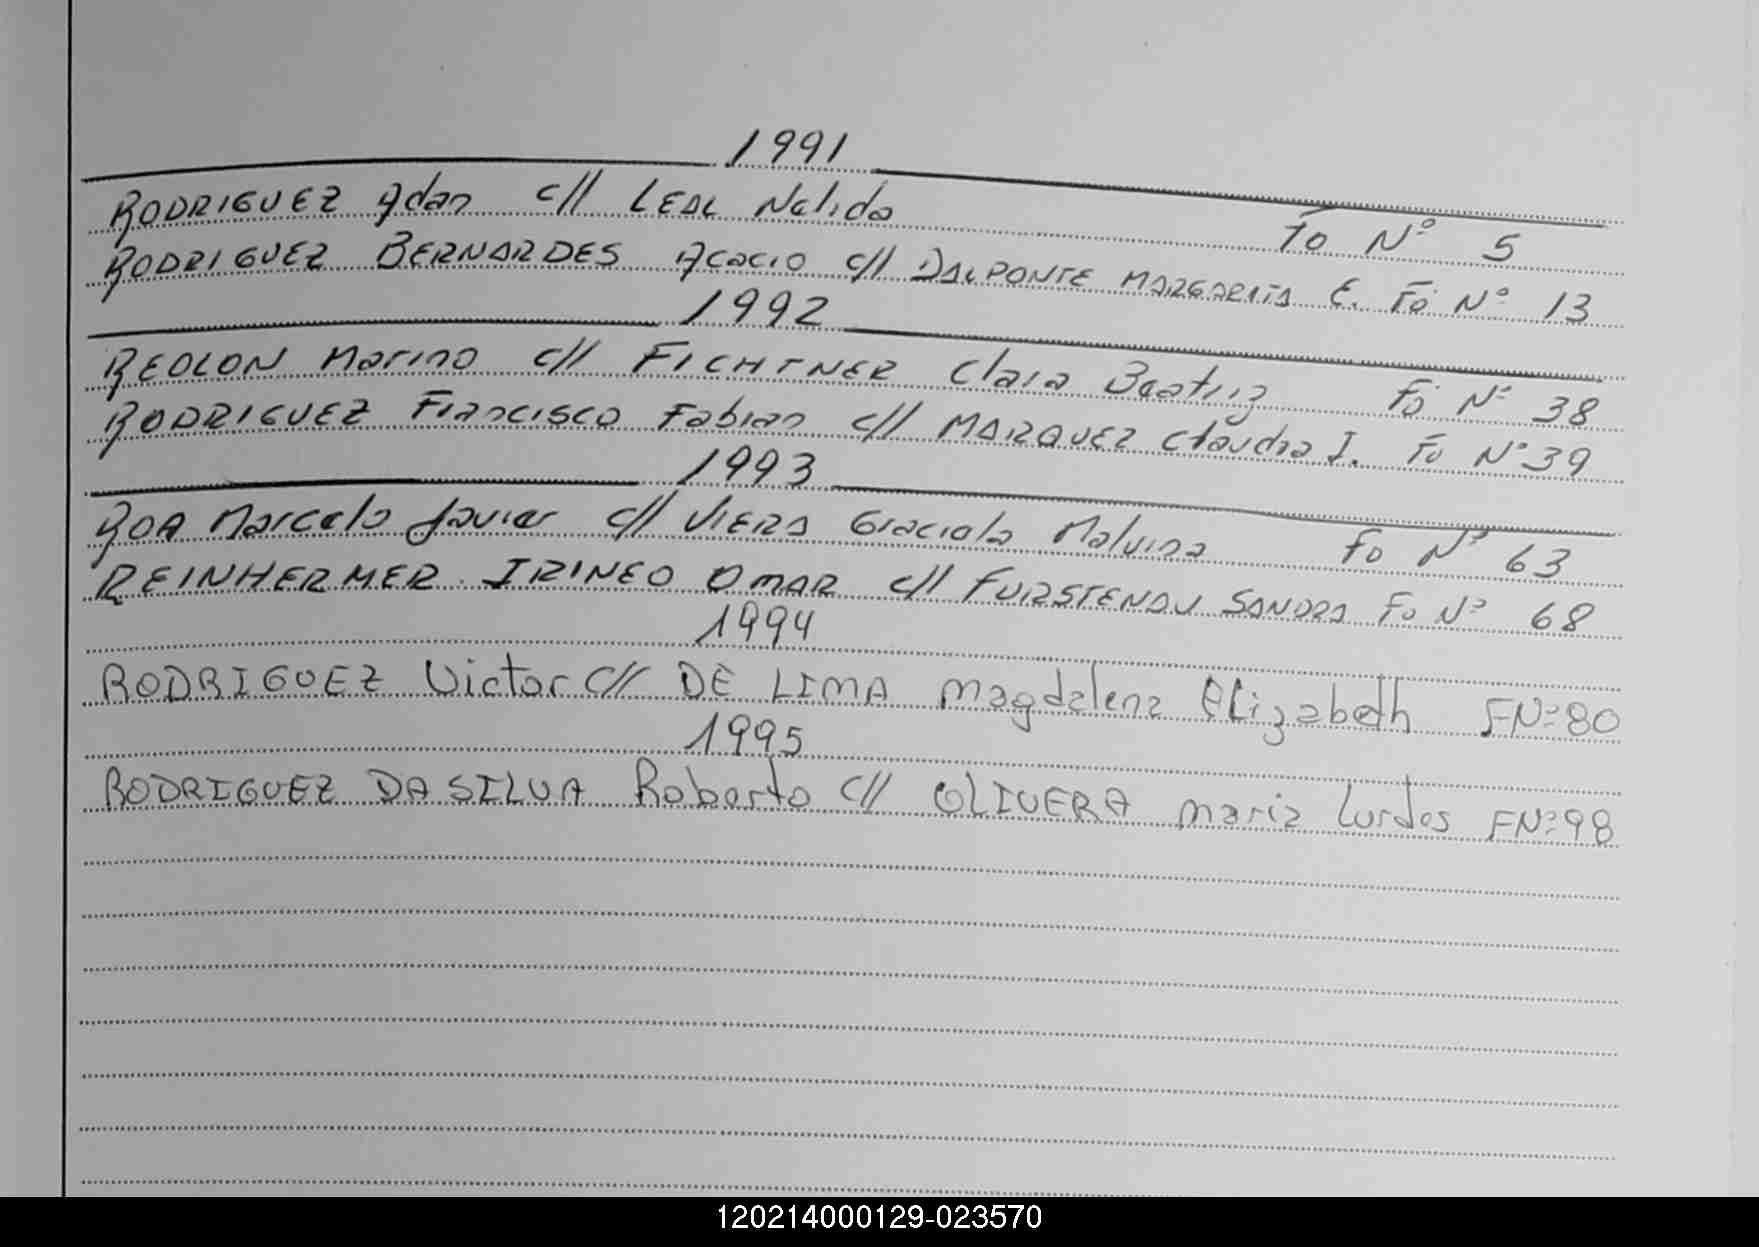 1991
RODRIGUEZ Adan c// LEAL Nelida Fo Nº 5
RODRIGUEZ BERNARDES Acacio c// DALPONTE MARGARITA E. Fo Nº 13
1992
REOLON Marino c// FICHTNER Clara Beatriz Fo Nº 38
RODRIGUEZ Francisco Fabian c// MARQUEZ Claudia I. Fo Nº 39
1993
ROA Marcelo Javier c// VIERA Graciela Malvina Fo Nº 63
REINHERMER IRINEO OMAR c// FURSTENAU SANDRA Fo Nº 68
1994
RODRIGUEZ Victor c// DE LIMA Magdalena Elizabeth FNº80
1995
RODRIGUEZ DA SILVA Roberto c// OLIVERA Maria Lurdes FNº98
120214000129-023570